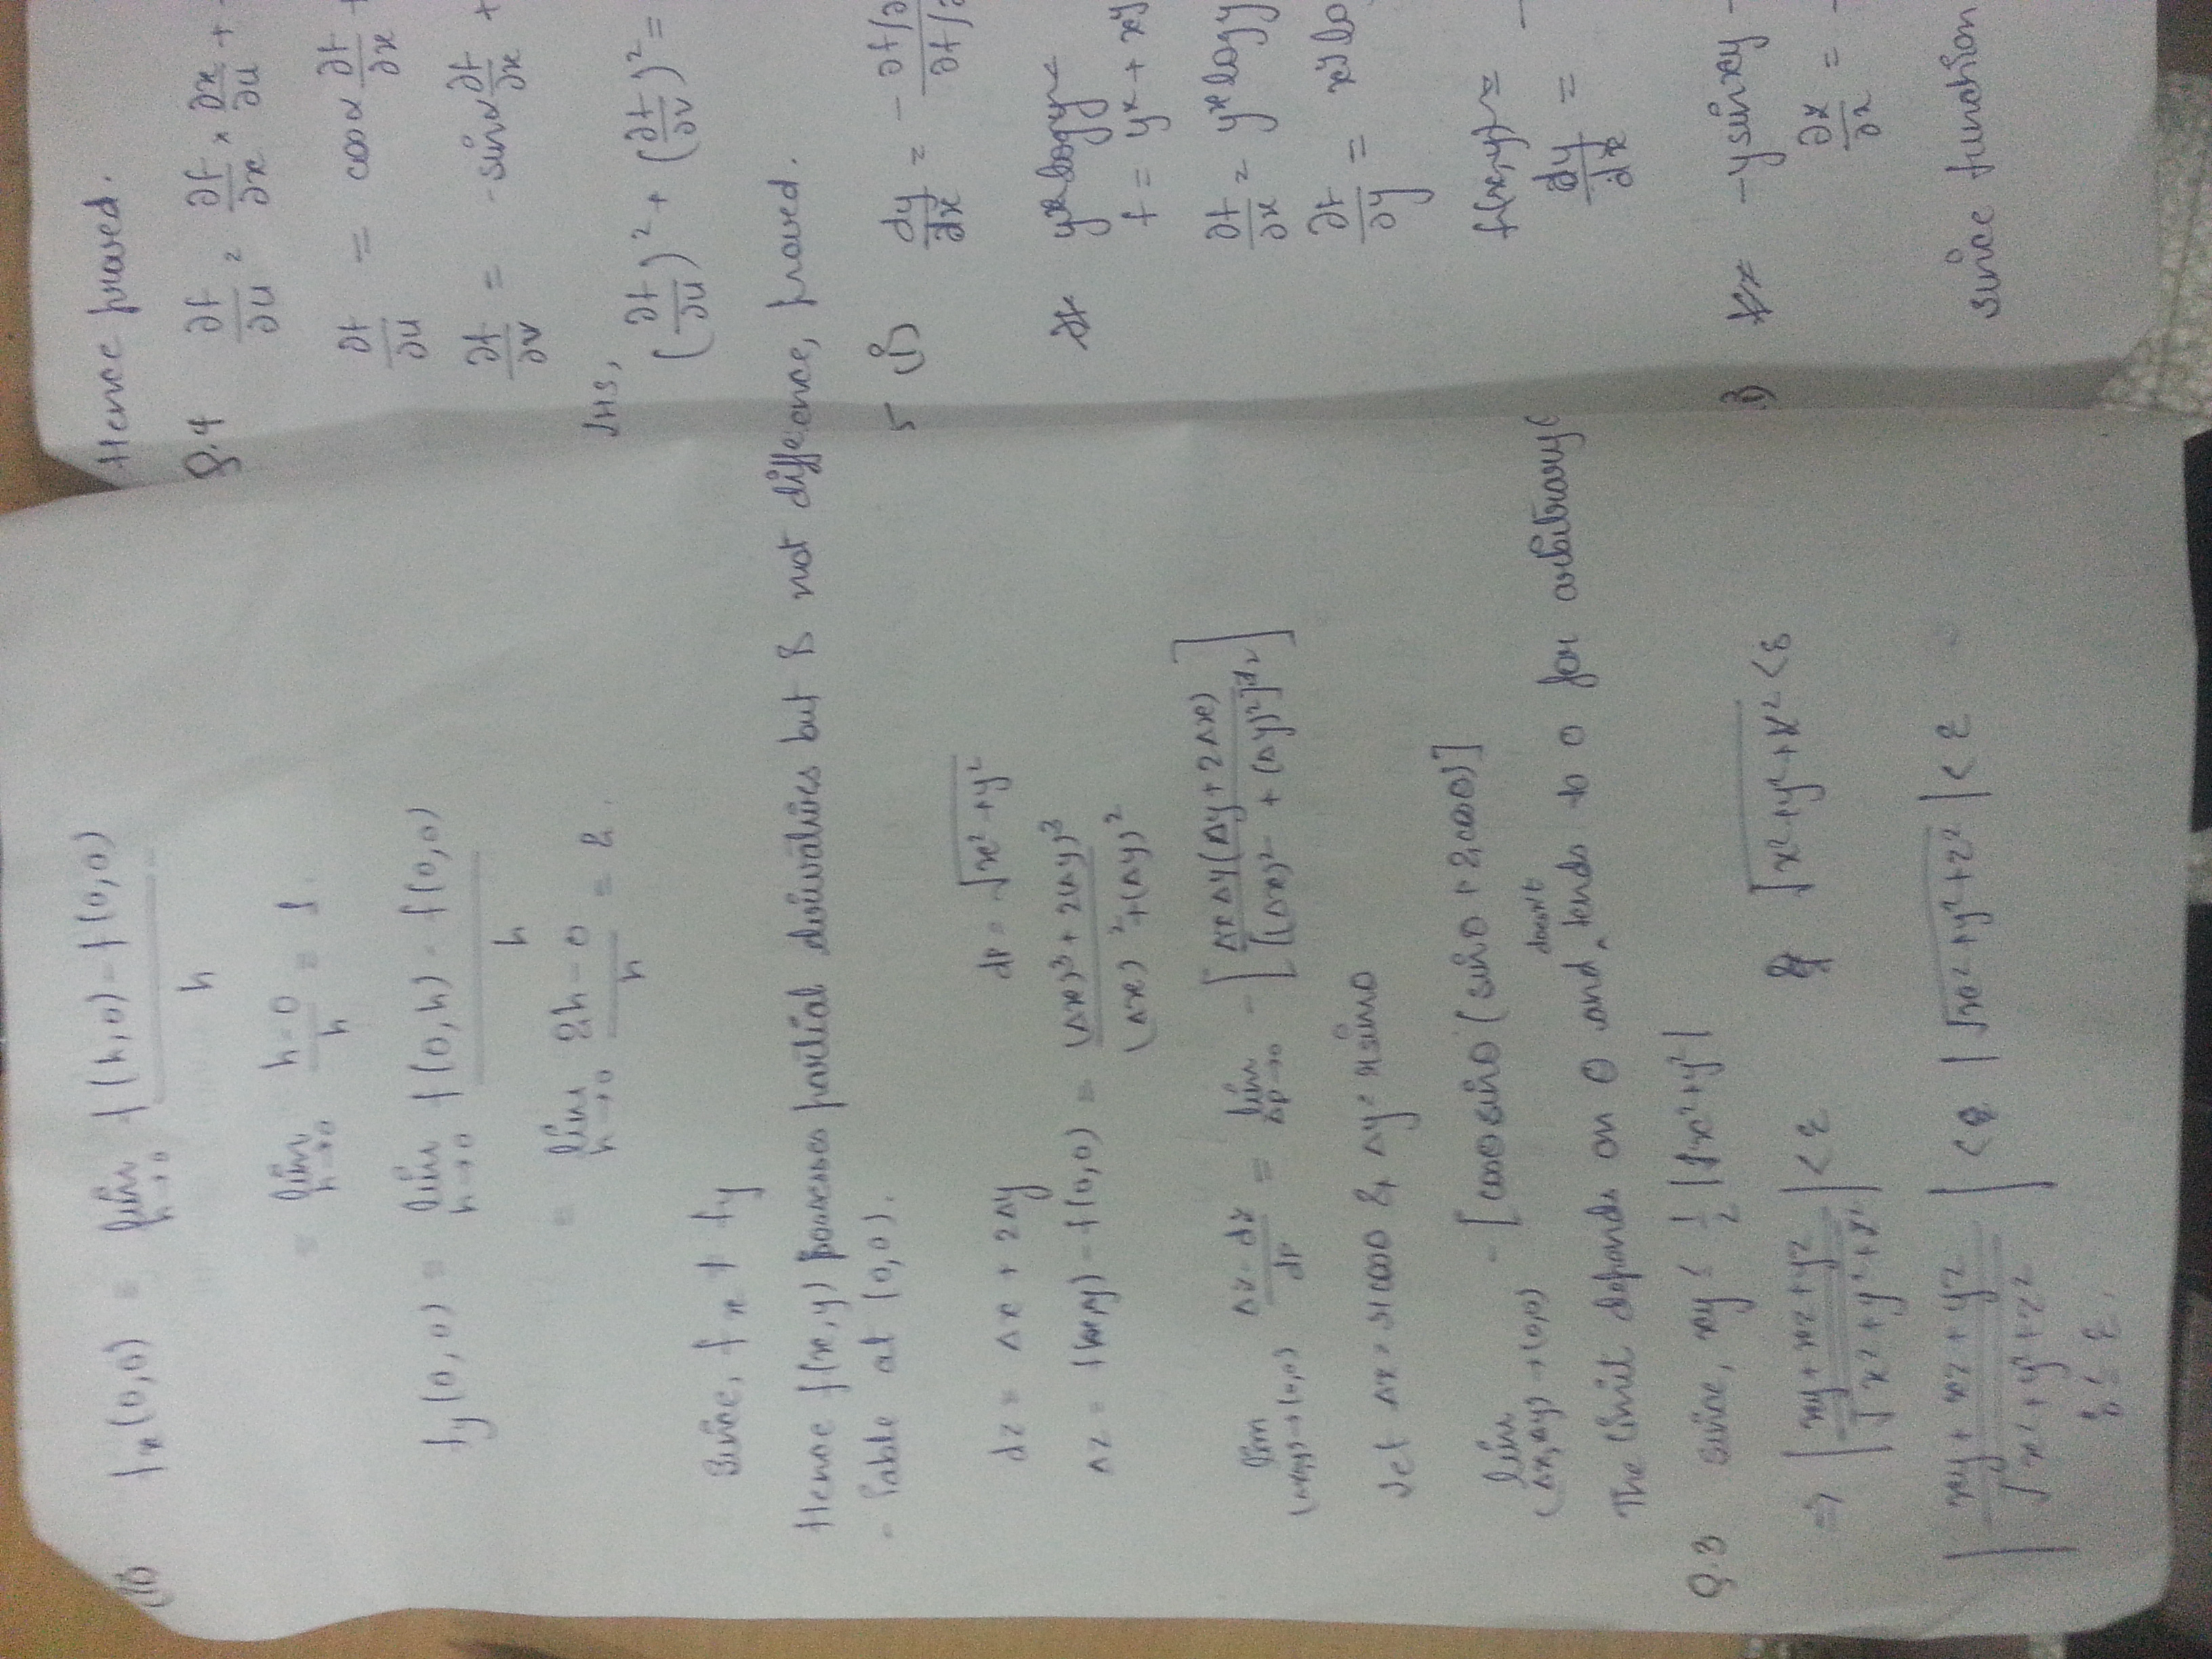 (ii) fx(0,0) = lim h→0 f(h,0) - f(0,0) / h
= lim h→0 h-0 / h = 1.
fy(0,0) = lim h→0 f(0,h) - f(0,0) / h
= lim h→0 2h-0 / h = 2.
Since, fx ≠ fy
Hence f(x,y) possesses partial derivatives but is not differen
-tiable at (0,0).
dz = Δx + 2Δy dρ = √x²+y²
Δz = f(Δx,Δy) - f(0,0) = (Δx)³ + 2(Δy)³ / (Δx)² + (Δy)²
lim (Δx,Δy)→(0,0) Δz - dz / dρ = lim Δρ→0 - [ΔxΔy(Δy+2Δx) / [(Δx)² + (Δy)²]3/2]
Let Δx = rcosθ & Δy = rsinθ
lim (Δx,Δy)→(0,0) -[cosθsinθ(sinθ+2cosθ)]
The limit depends on θ and doesn't tends to 0 for arbitrary
Q.3 Since, xy ≤ 1/2 |x²+y²|
⇒ |xy+xz+yz / √x²+y²+z²| < ε & √x²+y²+z² < δ
|xy+xz+yz / √x²+y²+z²| < |√x²+y²+z²| < ε
δ ≤ ε.
Hence proved.
Q.4 ∂f/∂u = ∂f/∂x × ∂x/∂u +
∂f/∂u = cosα ∂f/∂x +
∂f/∂v = -sinα ∂f/∂x +
LHS,
(∂f/∂u)² + (∂f/∂v)² =
Hence, proved.
5 (i) dy/dx = -∂f/∂ / ∂f/∂
yx logy =
f = yx + xy
∂f/∂x = yx logy
∂f/∂y = xy lo
f(x,y) =
dy/dx = -
-y sinxy -
∂z/∂x = -
since function